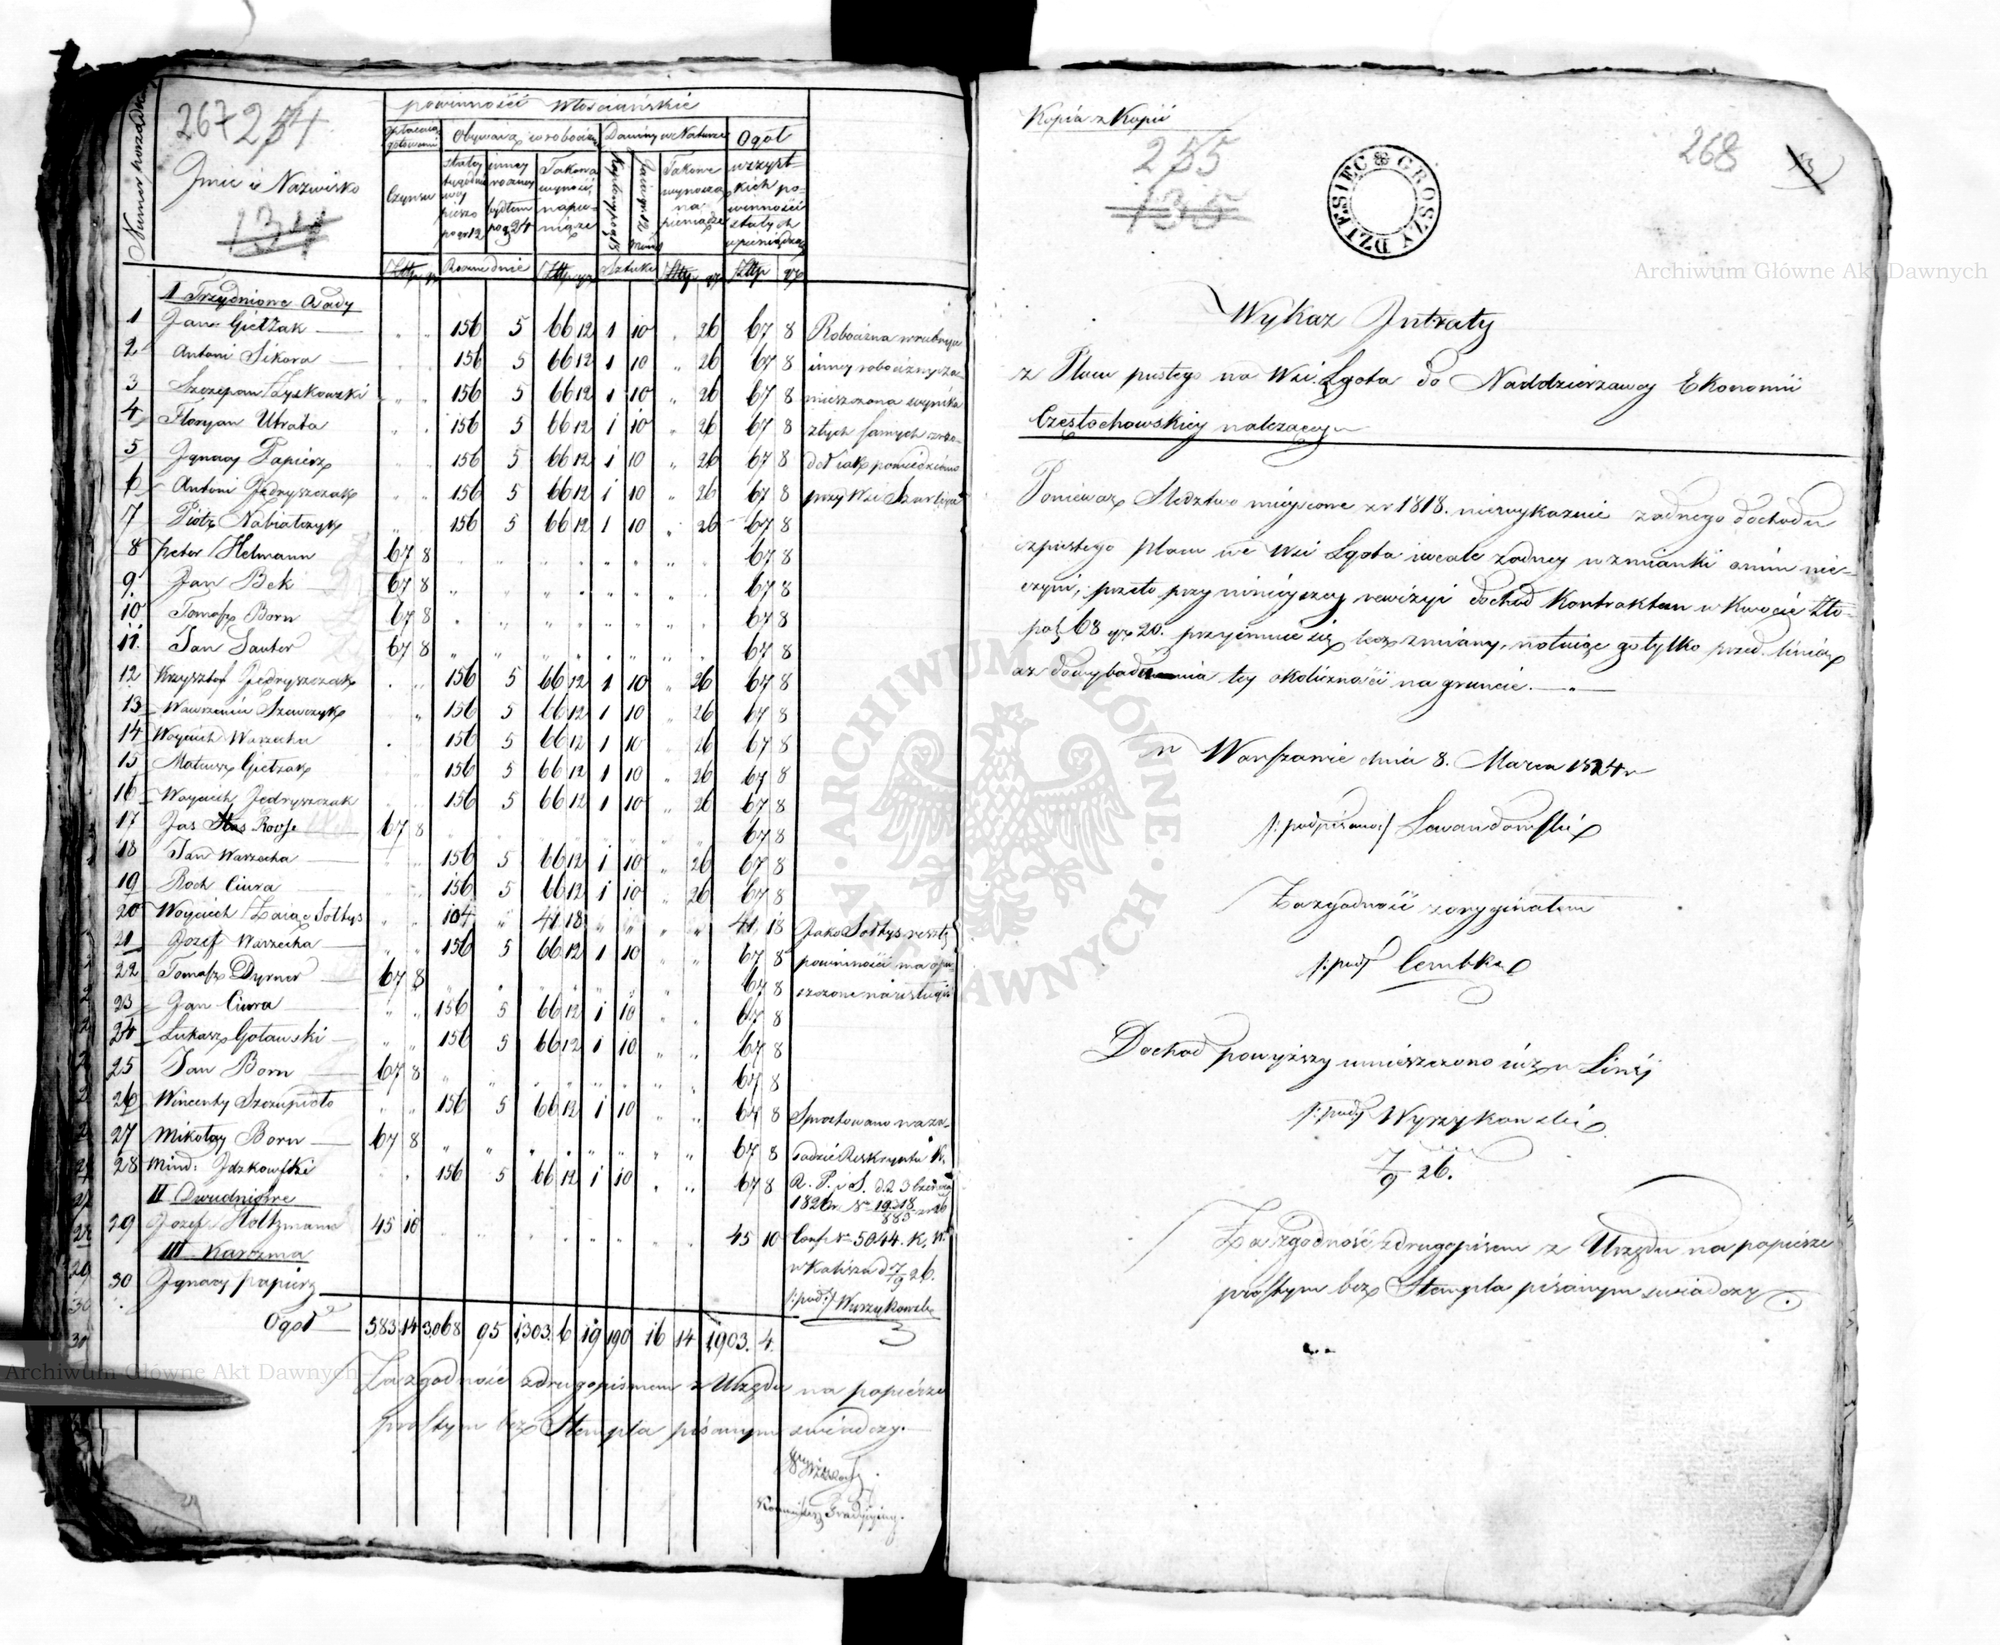 267 254
Numer porządkowy
Imie i Nazwisko
134
powinności Włościańskie
Opłacaią gotowizną
Czynsu
Odbywaią w robociźnie
Daniny w Naturze
Ogół
wszyst-
kich po-
winności
stałych
w pieniądzach
Takowa
wynosi
na pie-
niądze
Takowe
wynoszą
na
pieniądze
Złtp gr Rocznie dnie Złtp gr Sztuki Złtp gr Złtp gr
I Trzydniowe Osady
1 Jan Gietzak 156 5 66 12 1 10 26 67 8 Robocizna w rubryce
2 Antoni Sikora 156 5 66 12 1 10 26 67 8
3 Szczepan Łyskowski 156 5 66 12 1 10 26 67 8
4 Floryan Utrata 156 5 66 12 1 10 26 67 8
5 Ignacy Papierz 156 5 66 12 1 10 26 67 8
6 Antoni Jędryszczak 156 5 66 12 1 10 26 67 8
7 Piotr Nabiałczyk 156 5 66 12 1 10 26 67 8
8 Peter Helmann 67 8 67 8
9 Jan Bek 67 8 67 8
10 Tomasz Born 67 8 67 8
11 Jan Sauter 67 8 67 8
12 Krzysztof Jędryszczak 156 5 66 12 1 10 26 67 8
13 Wawrzeniec Szewczyk 156 5 66 12 1 10 26 67 8
14 Woyciech Warzecha 156 5 66 12 1 10 26 67 8
15 Mateusz Gietzak 156 5 66 12 1 10 26 67 8
16 Woyciech Jędryszczak 156 5 66 12 1 10 26 67 8
17 67 8 67 8
18 Jan Warzecha 156 5 66 12 1 10 26 67 8
19 Roch Ciura 156 5 66 12 1 10 26 67 8
20 Woyciech Zaiąc Sołtys 104 41 18 41 18 Jako Sołtys resztę
21 Jozef Warzecha 156 5 66 12 1 10 67 8 powinności ma opu-
22 Tomasz Dyrner 67 8 67 8
23 Jan Ciura 156 5 66 12 1 10 67 8
24 Łukasz Gołauski 156 5 66 12 1 10 67 8
25 Jan Born 67 8 67 8
26 Wincenty Szczupiało 156 5 66 12 1 10 67 8 Sprostowano na za-
27 Mikołay Born 67 8 67 8 sadzie Reskryptu K.
28 156 5 66 12 1 10 67 8 R. P. i S. d. 23 Czerwca
1826 r. No 19318/883
II Dwudniowe
29 Jozef Holtzmann 45 10 45 10 Conf No 5044. K. W.
III Karczma
w Kaliszu d 7/9 26.
30 Ignacy Papierz
/:pod:/ Wyrzykowski
Ogół 583 14 3068 95 1303. 6 19 190 16 14 1,903. 4.
Za zgodność z drugopismem z Urzędu na papierze
prostym bez Stempla pisanym świadczy.
Kopia z Kopii
255
135
268
13
DZIESIĘC GROSZY
Wykaz Intraty
z Placu pustego na Wsi Lgota do Naddzierzawcy Ekonomii
Częstochowskiey nalezącego
Poniewasz Sledztwo mieyscowe z r 1818. niewykazuie zadnego dochodu
z pustego placu we Wsi Lgota i wcale żadney wzmianki o nim nie-
czyni, przeto przy ninieyszey rewizyi dochod Kontraktem w Kwocie Zło-
pol 68 gr 20. przyimuie się bez zmiany, notuiąc go tylko przed linią
az do wybadania tey okoliczności na gruncie.
w Warszawie dnia 8. Marca 1824 r
/:podpisano:/ Lewandowski
Za zgodność z oryginałem
/:pod:/ Cembka
Dochod powyższy umieszczono iuż w Linij
/:pod:/ Wyrzykowski
7/9 26.
Za zgodność z drugopisem z Urzędu na papierze
prostym bez Stempla pisanym swiadczy.
Archiwum Główne Akt Dawnych
Archiwum Główne Akt Dawnych
ARCHIWUM GŁÓWNE AKT DAWNYCH